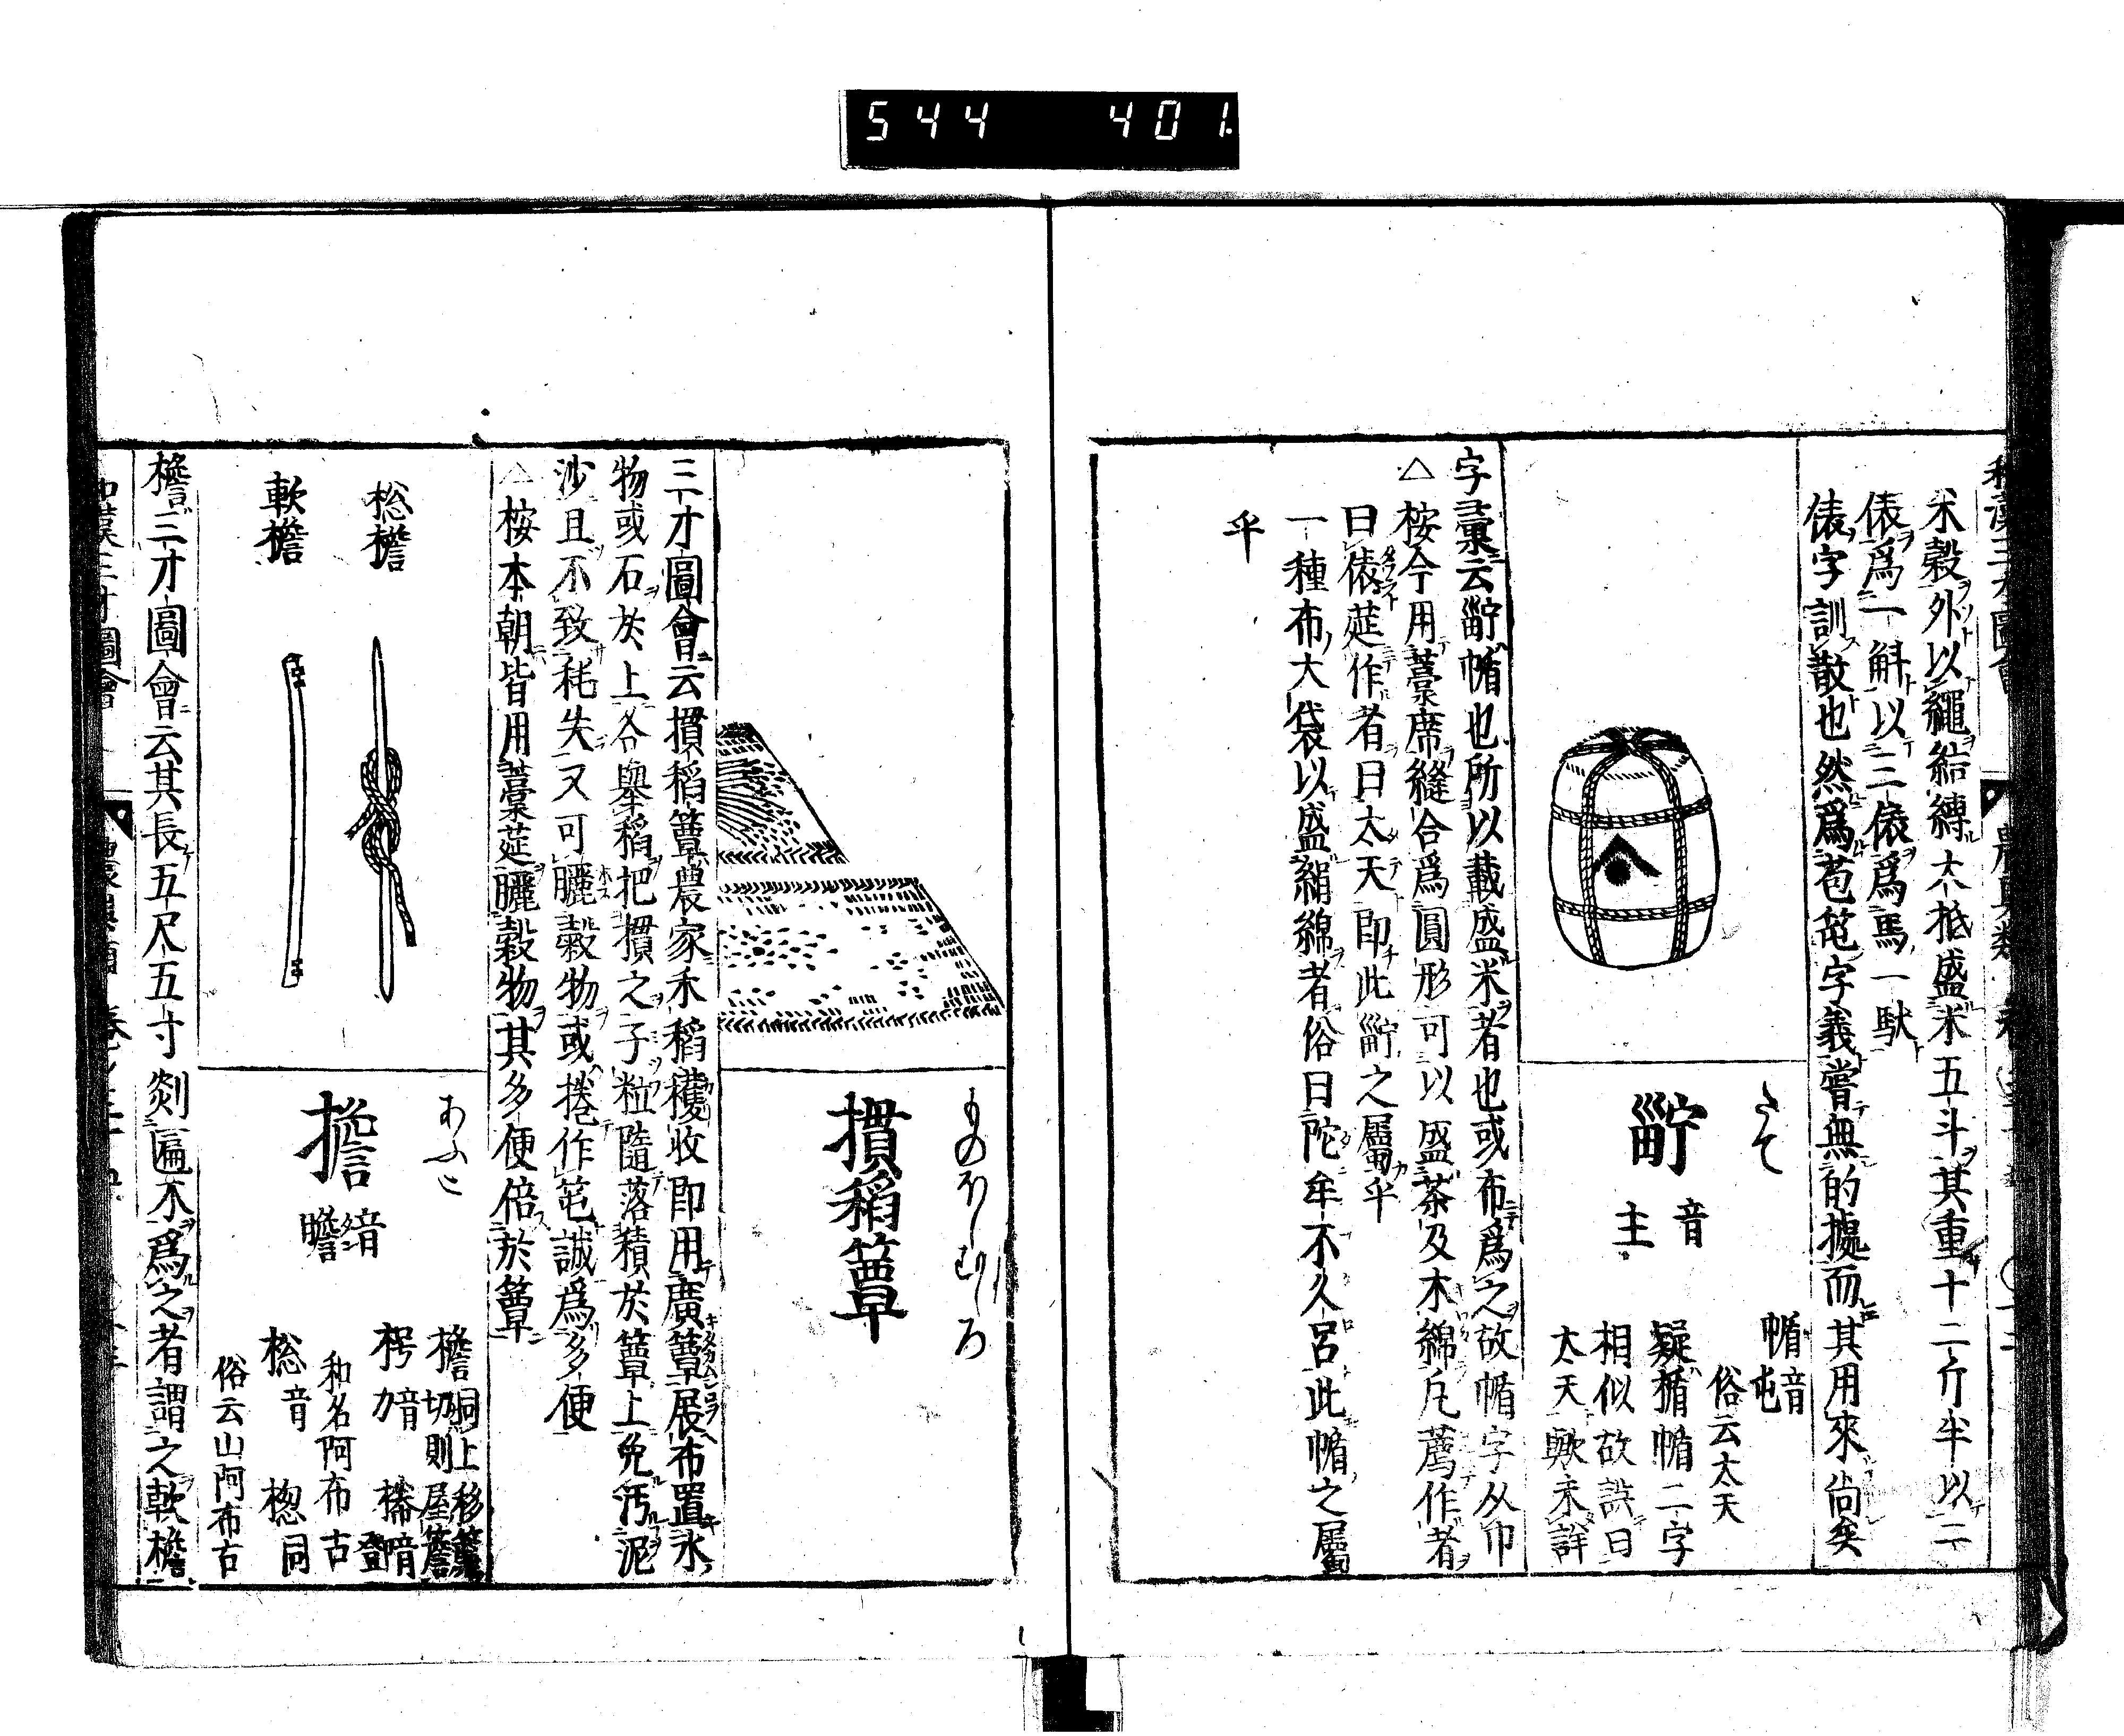 544 401
米穀外以繩結縛大抵盛米五斗其重十二斤半以二
俵爲一斛以二俵爲馬一駄
俵字訓散也然爲苞笣字義嘗無的據而其用來尚矣
たて
𤲞
音
主
㡒音屯
俗云太天
疑楯㡒二字
相似故誤曰
太天歟未詳
字彙云𤲞㡒也所以載盛米者也或布爲之故㡒字从巾
△按今用藁席縫合爲圓形可以盛茶及木綿凡薦作者
曰俵莚作者曰太天即此𤲞之屬乎
一種布大袋以盛絹綿者俗曰陀牟不久呂此㡒之屬
乎
ものほしむしろ
摜稻簟
三才圖會云摜稻簟農家禾稻穫收即用廣簟展布置水
物或石於上各舉稻把摜之子粒隨落積於簟上免汚泥
沙且不致耗失又可曬穀物或捲作笣誠爲多便
△按本朝皆用藁莚曬穀物其多便倍於簟
棇檐
軟檐
あふこ
擔
音
瞻
和名阿布古
棇音 楤同
俗云山阿布古
檐三才圖會云其長五尺五寸剡匾木爲之者謂之軟檐